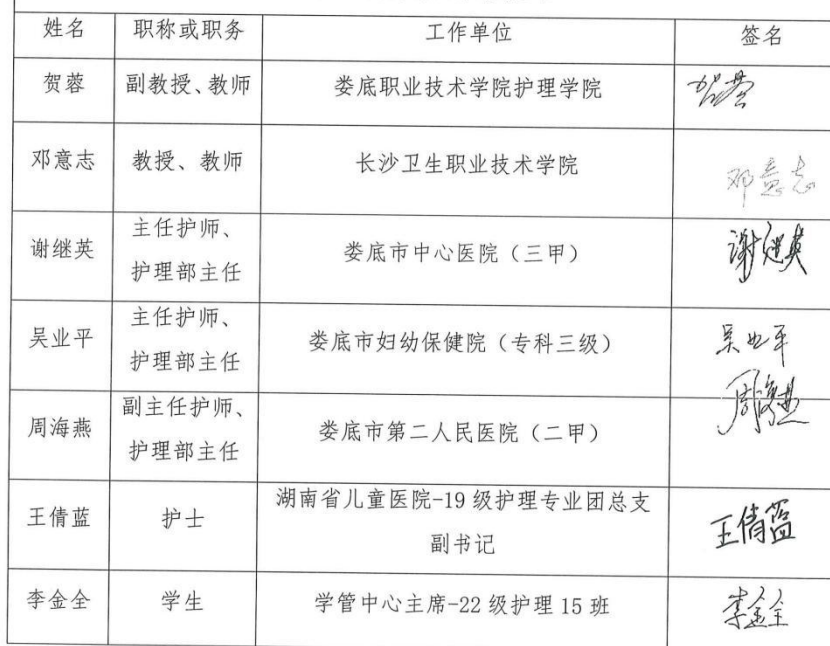 姓名 职称或职务 工作单位 签名
贺蓉 副教授、教师 娄底职业技术学院护理学院 贺蓉
邓意志 教授、教师 长沙卫生职业技术学院 邓意志
谢继英 主任护师、
护理部主任 娄底市中心医院（三甲） 谢继英
吴业平 主任护师、
护理部主任 娄底市妇幼保健院（专科三级） 吴业平
周海燕 副主任护师、
护理部主任 娄底市第二人民医院（二甲） 周海燕
王倩蓝 护士 湖南省儿童医院-19 级护理专业团总支
副书记 王倩蓝
李金全 学生 学管中心主席-22 级护理 15 班 李金全